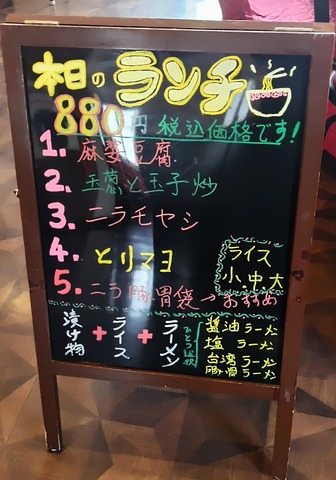 本日のランチ
880円 税込価格です!
1. 麻婆豆腐
2. 玉葱と玉子炒
3. ニラモヤシ
4. とりマヨ
5. ニラ豚胃袋→おすすめ
ライス
小中大
漬け物
+
ライス
+
ラーメン
ひとつ選択
醤油ラーメン
塩ラーメン
台湾ラーメン
豚骨ラーメン